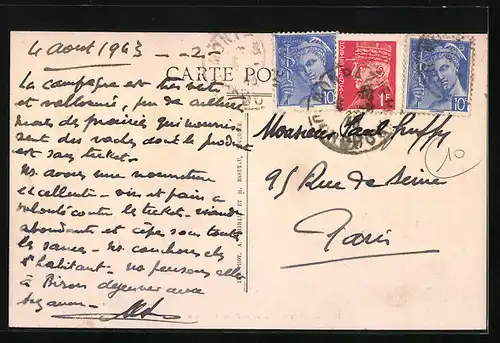 4 aout 1943 - 2 -
CARTE PO
La campagne est très verte
et vallonnée, peu de cultures
mais des prairies qui nourrissent
sent des vaches dont le produit
est sans ticket.
Ns avons une nourriture
excellente - vin et pain à
volonté contre les tickets - viande
abondante et cèpes sous toutes
les sauces - ns couchons chez
l'habitant - ns pensons aller
à Biron déjeuner avec
Monsieur Paul
95 Rue de Seine
Paris
10
10
1F
10